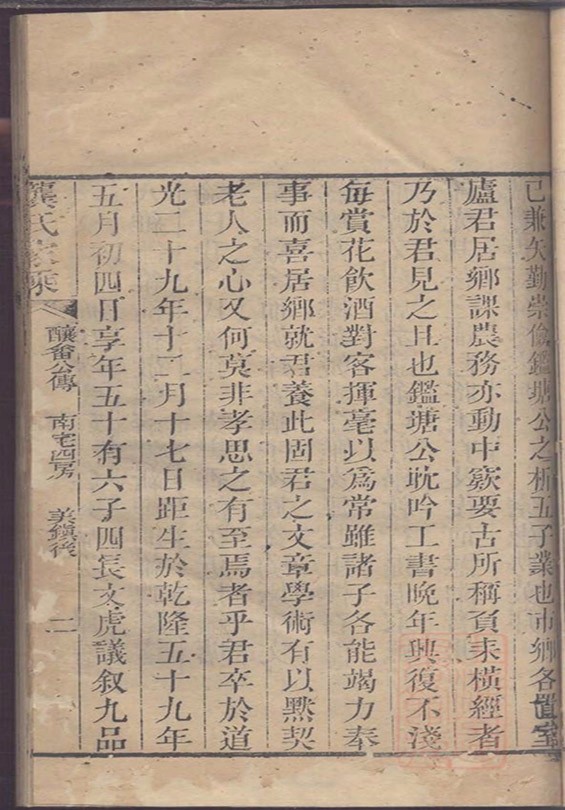 已兼矢勤崇儉鑑塘公之析五子業也市鄉各置室
廬君居鄉課農務亦動中窾要古所稱負耒橫經者
乃於君見之且也鑑塘公耽吟工書晚年興復不淺
每賞花飲酒對客揮毫以爲常雖諸子各能竭力奉
事而喜居鄉就君養此固君之文章學術有以默契
老人之心又何莫非孝思之有至焉者乎君卒於道
光二十九年十二月十七日距生於乾隆五十九年
五月初四日享年五十有六子四長文虎議叙九品
龔氏家乘
釀畬公傳 南宅四房 美鎮後 二